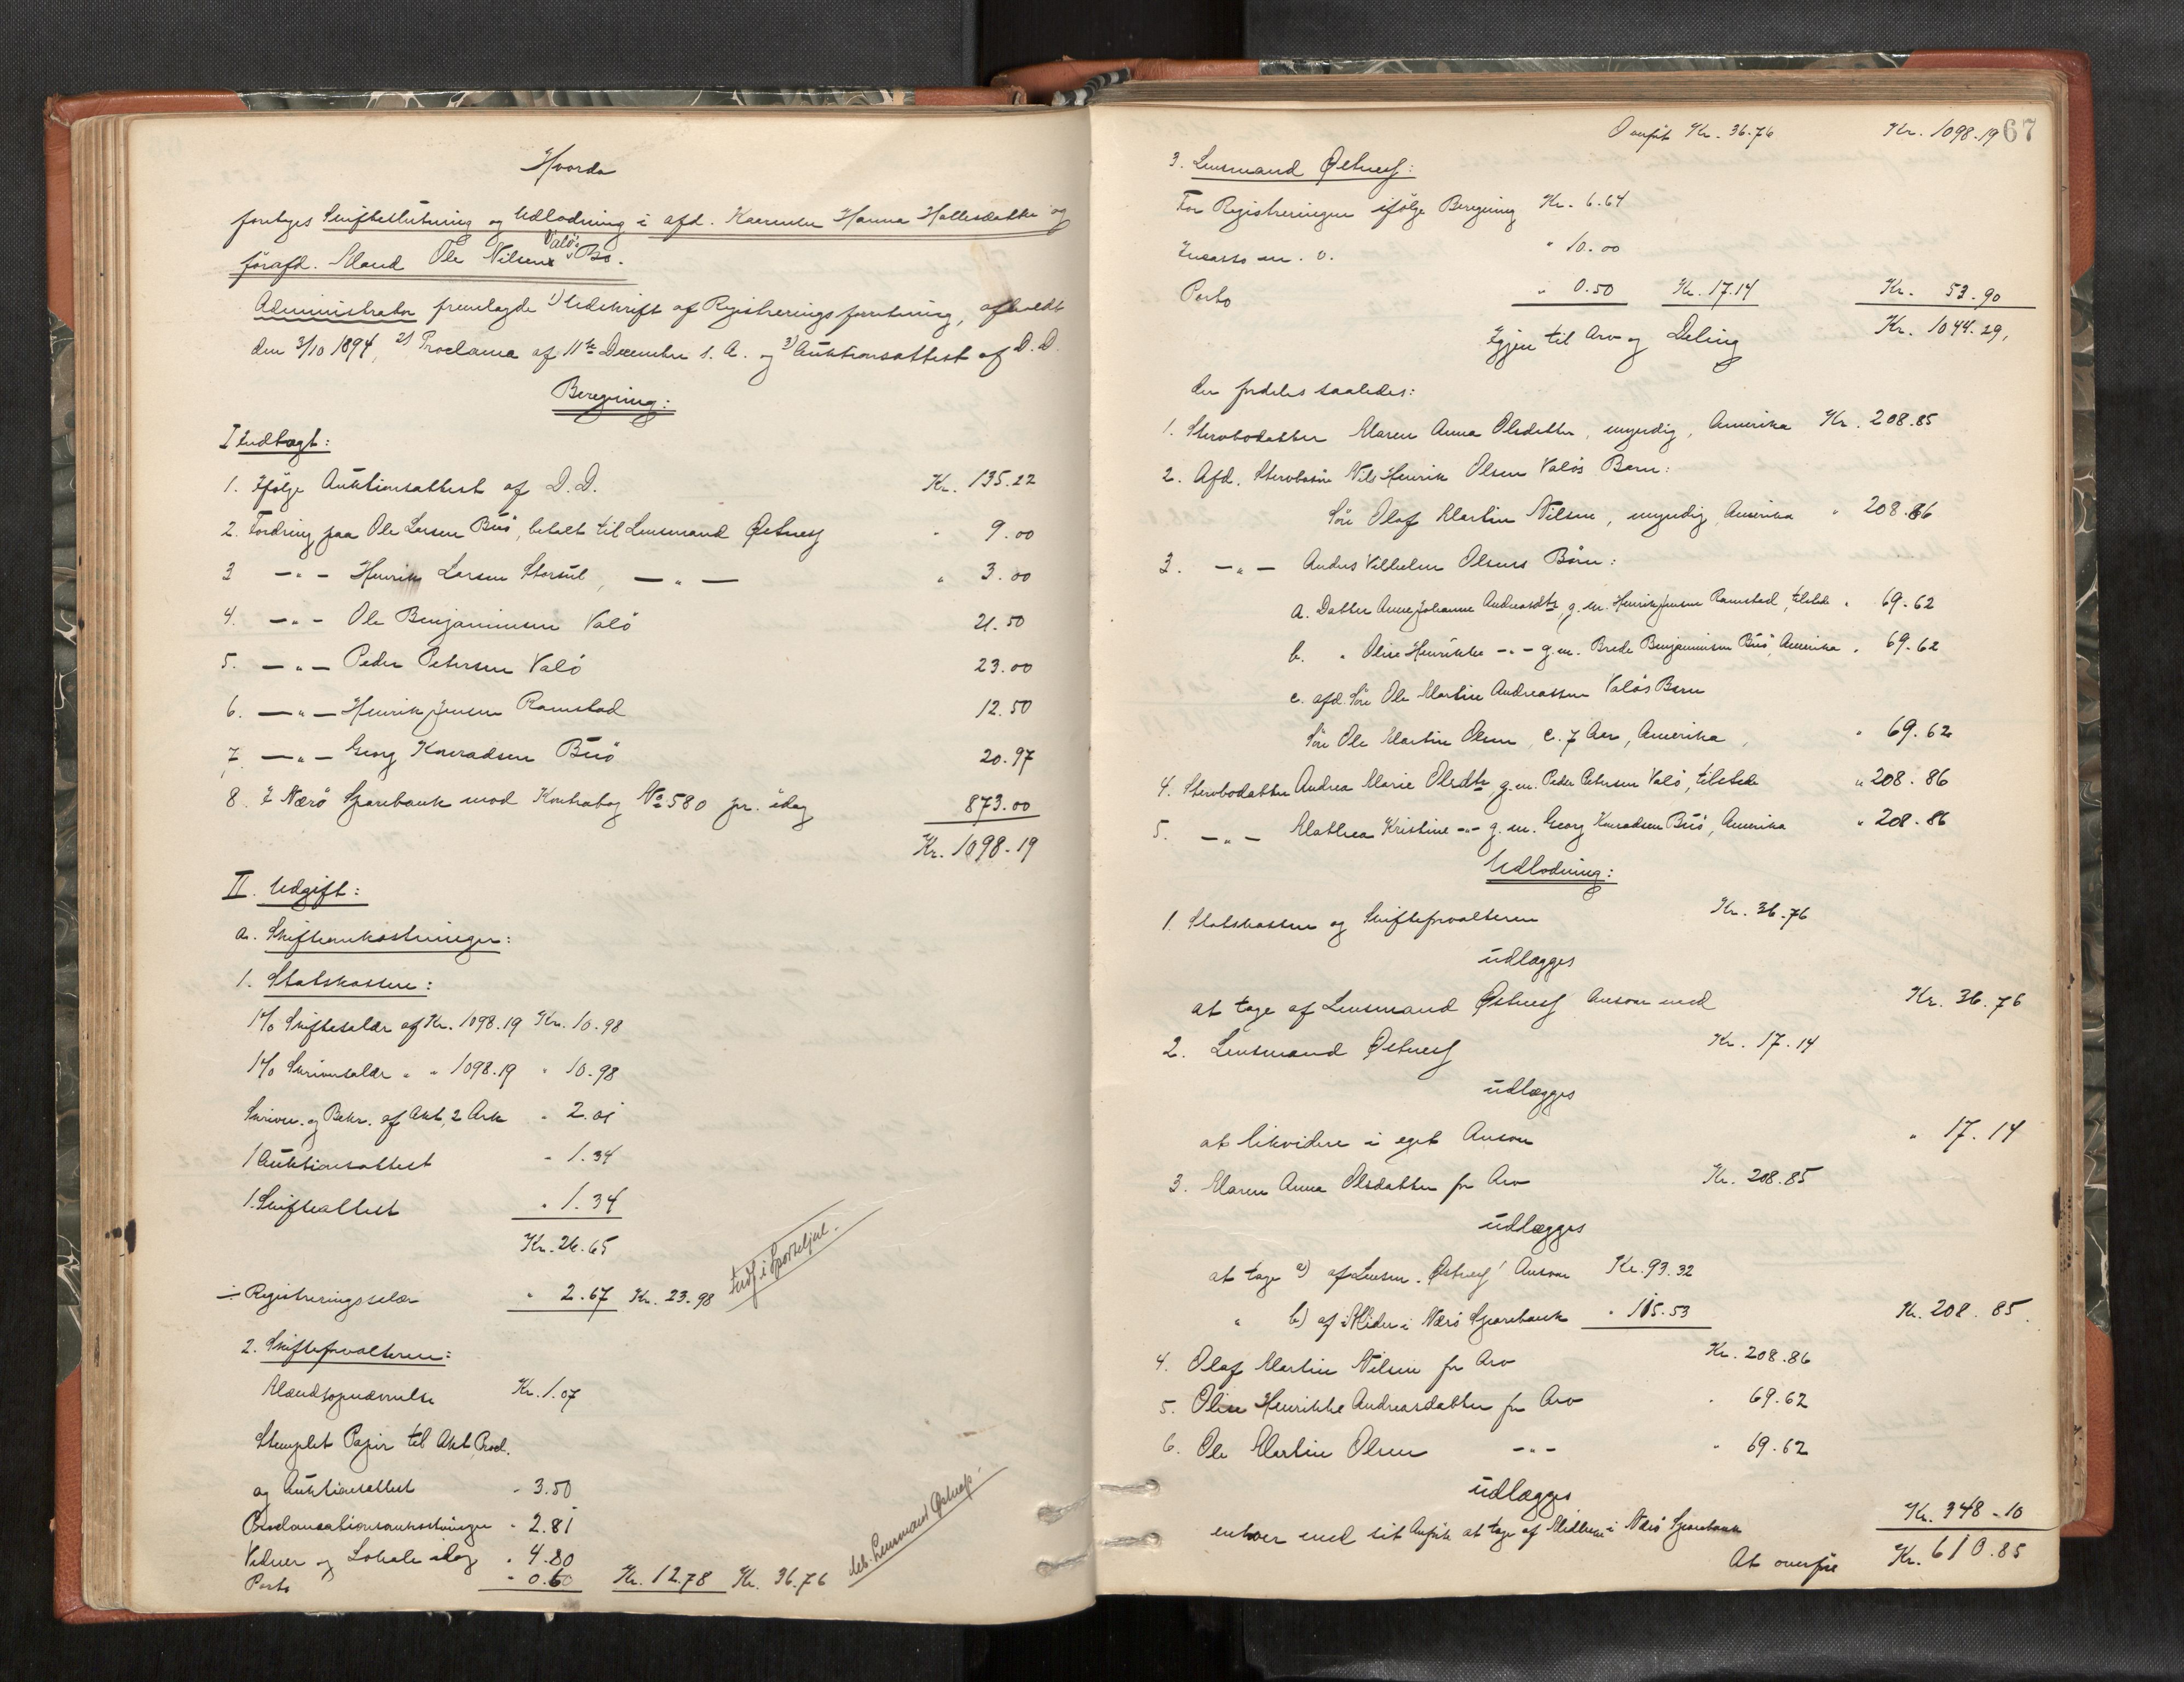 Hvorda
foretoges Skiftesluttning og Udlodning i afd. Kaarenke Hanna Hallesdatter og
førafd. Mand Ole Nilsens Valøs Bo.
Administrator fremlagde 1) Udskrift af Registreringsforretning, afholdt
den 3/10 1894, 2) Proclama af 11te December s. A. og 3) Auktionsattest af D. D.
Beregning:
I Indtægt:
1. Ifølge Auktionsattest af D. D. Kr. 135.22
2. Fordring paa Ole Larsen Buø, betalt til Lensmand Østnes " 9.00
3 —"— Henrik Larsen Storsul, —"— " 3.00
4. —"— Ole Benjaminsen Valø 21.50
5. —"— Peder Petersen Valø 23.00
6. —"— Henrik Jensen Ramstad 12.50
7. —"— Georg Konradsen Buø 20.97
8. I Nærø Sparebank mod Kontrabog No 580 pr. idag 873.00
Kr. 1098.19
II. Udgift:
a. Skifteomkostninger:
1. Statskassen:
1% Skiftesalær af Kr. 1098.19 Kr. 10.98
1% Skriversalær " " 1098.19 " 10.98
Skriver. og Bekr. af Akt, 2 Ark " 2.01
1 Auktionsattest " 1.34
1 Skifteattest " 1.34
Kr. 26.65
÷ Registreringssalær " 2.67 Kr. 23.98
Indf. i Sporteljul.
2. Skifteforvalteren:
Mændsopnævnelse Kr. 1.07
Stemplet Papir til Akt, Procl.
og Auktionsattest " 3.50
Proclamationsomkostninger " 2.81
Vidner og Lokale idag " 4.80
Porto " 0.60 Kr. 12.78 Kr. 36.76
deb. Lensmand Østnes
67
Overført Kr. 36.76 Kr. 1098.19
3. Lensmand Østnes:
For Registreringen ifølge Beregning Kr. 6.64
Incasso m. v. " 10.00
Porto " 0.50 Kr. 17.14 Kr. 53.90
Igjen til Arv og Deling Kr. 1044.29,
der fordeles saaledes:
1. Stervbodatter Maren Anna Olsdatter, myndig, Amerika Kr. 208.85
2. Afd. Stervbosøn Nils Henrik Olsen Valøs Barn:
Søn Olaf Martin Nilsen, myndig, Amerika " 208.86
3. —"— Andreas Vilhelm Olsens Børn:
a. Datter Anne Johanne Andreasdtr, g. m. Henrik Jensen Ramstad, tilstede " 69.62
b. " Oline Henrikke —"— g. m. Brede Benjaminsen Buø, Amerika " 69.62
c. afd. Søn Ole Martin Andreassen Valøs Barn
Søn Ole Martin Olsen, c. 7 Aar, Amerika, " 69.62
4. Stervbodatter Andrea Marie Olsdtr, g. m. Peder Petersen Valø, tilstede " 208.86
5. —"— Mathea Kristine —"— g. m. Georg Konradsen Buø, Amerika " 208.86
Udlodning:
1. Statskassen og Skifteforvalteren Kr. 36.76
udlægges
at tage af Lensmand Østnes Ansvar med Kr. 36.76
2. Lensmand Østnes Kr. 17.14
udlægges
at likvidere i eget Ansvar " 17.14
3. Maren Anna Olsdatter for Arv Kr. 208.85
udlægges
at tage a) af Lensm. Østnes' Ansvar Kr. 93.32
" b) af Midler i Nærø Sparebank " 115.53 Kr. 208.85.
4. Olaf Martin Nilsen for Arv Kr. 208.86
5. Oline Henrikke Andreasdatter for Arv " 69.62
6. Ole Martin Olsen —"— " 69.62
udlægges
enhver med sit Anpart at tage af Midlerne i Nærø Sparebank Kr. 348.10
At overføre Kr. 610.85